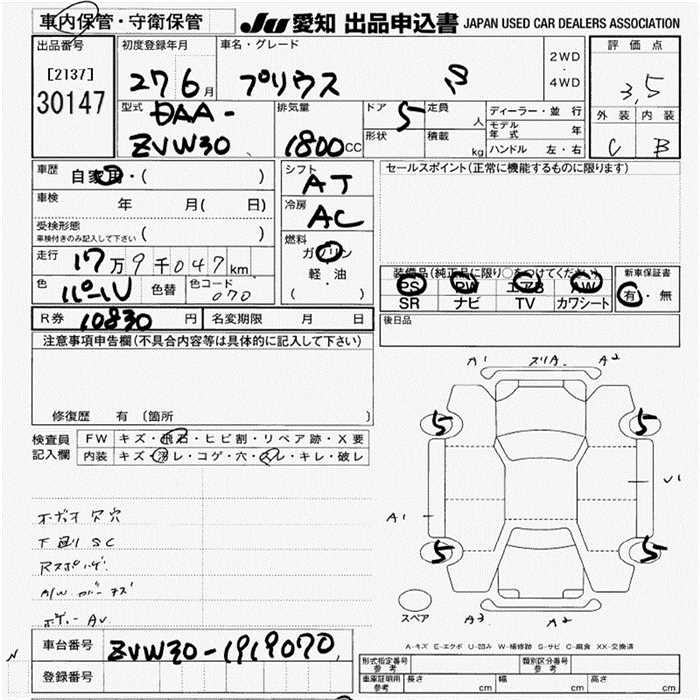 車内保管・守衛保管
JU 愛知 出品申込書 JAPAN USED CAR DEALERS ASSOCIATION
出品番号
[2137]
30147
初度登録年月
27 6月
車名・グレード
プリウス S
2WD
・
4WD
評価点
3.5
外装 内装
C B
型式
DAA-
ZVW30
排気量
1800cc
ドア 5
形状
定員 人
積載 kg
ディーラー・並行
モデル年式 年
ハンドル 左・右
車歴
自家用・( )
車検 年 月( 日)
受検形態
車検付きのみ記入して下さい ( )
走行 17万9千047km
色 パール 色替 色コード 070
シフト AT
冷房 AC
燃料
ガソリン
軽・油
( )
セールスポイント(正常に機能するものに限ります)
装備品(純正品に限り○をつけてください)
PS PW エアB AW
SR ナビ TV カワシート
新車保証書
有・無
R券 10830円 名変期限 月 日
後日品
注意事項申告欄(不具合内容等は具体的に記入して下さい)
修復歴 有 〔箇所 〕
検査員記入欄
FW キズ・飛石・ヒビ割・リペア跡・X要
内装 キズ・汚レ・コゲ・穴・スレ・キレ・破レ
下廻り SC
A1 スリA A2
5 5
A1 U1
5 5
スペア A3 A2
A-キズ E-エクボ U-凹み W-補修跡 S-サビ C-腐食 XX-交換済
車台番号 ZVW30-1919070
登録番号
形式指定番号 参考 類別区分番号 参考
車庫証明用 参考 長さ cm 幅 cm 高さ cm